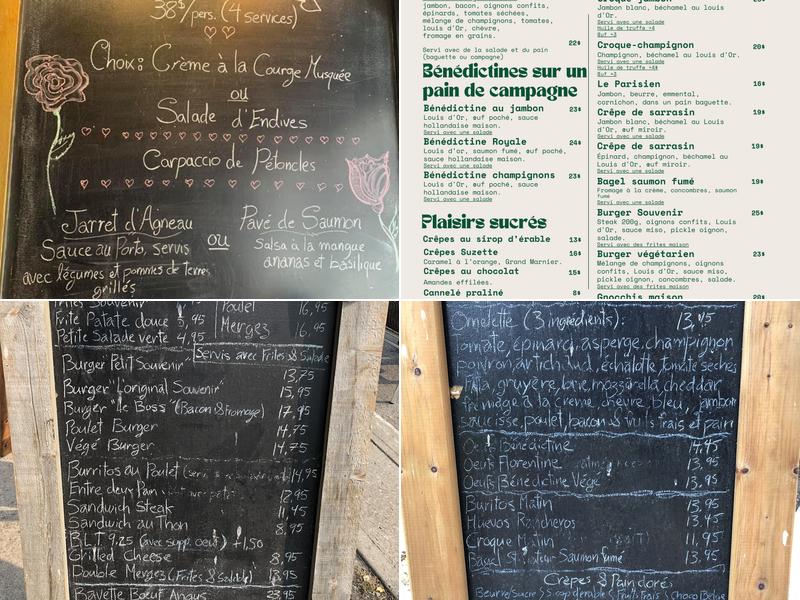 38$/pers. (4 services)
Choix: Crème à la Courge Musquée
ou
Salade d'Endives
Carpaccio de Pétoncles
Jarret d'Agneau
Sauce au Porto, servis
avec légumes et pommes de terres
grillés
ou
Pavé de Saumon
Salsa à la mangue
ananas et basilique
jambon, bacon, oignons confits,
épinards, tomates séchées,
mélange de champignons, tomates,
louis d'Or, chèvre,
fromage en grains.
22$
Servi avec de la salade et du pain
(baguette ou campagne)
Bénédictines sur un
pain de campagne
Bénédictine au jambon 23$
Louis d'Or, œuf poché, sauce
hollandaise maison.
Servi avec une salade
Bénédictine Royale 24$
Louis d'or, saumon fumé, œuf poché,
sauce hollandaise maison.
Servi avec une salade
Bénédictine champignons 23$
Louis d'Or, œuf poché, sauce
hollandaise maison.
Servi avec une salade
Plaisirs sucrés
Crêpes au sirop d'érable 13$
Crêpes Suzette 16$
Caramel à l'orange, Grand Marnier.
Crêpes au chocolat 15$
Amandes effilées.
Cannelé praliné 8$
Jambon blanc, béchamel au louis
d'Or.
Servi avec une salade
Huile de truffe +4
Œuf +3
Croque-champignon 20$
Champignon, béchamel au louis d'Or.
Servi avec une salade
Huile de truffe +4$
Œuf +3
Le Parisien 16$
Jambon, beurre, emmental,
cornichon, dans un pain baguette.
Crêpe de sarrasin 19$
Jambon blanc, béchamel au Louis
d'Or, œuf miroir.
Servi avec une salade
Crêpe de sarrasin 19$
Épinard, champignon, béchamel au
Louis d'Or, œuf miroir.
Servi avec une salade
Bagel saumon fumé 19$
Fromage à la crème, concombres, saumon
fumé
Servi avec une salade
Burger Souvenir 25$
Steak 200g, oignons confits, Louis
d'Or, sauce miso, pickle oignon,
salade.
Servi avec des frites maison
Burger végétarien 23$
Mélange de champignons, oignons
confits, Louis d'Or, sauce miso,
pickle oignon, concombres, salade.
Servi avec des frites maison
Gnocchis maison 20$
Frites Souvenir
Frite Patate douce 5,95
Petite Salade verte 4,95
Poulet 16,95
Merguez 16,95
Servis avec Frites & Salade
Burger "Petit Souvenir" 13,75
Burger "L'original Souvenir" 15,95
Burger "Le Boss" (Bacon & fromage) 17,95
Poulet Burger 14,75
Végé Burger 14,75
Burritos au Poulet 14,95
Entre deux Pain 12,95
Sandwich Steak 11,45
Sandwich au Thon 8,95
B.L.T 9,25 (avec supp. oeuf) +1,50
Grilled Cheese 8,95
Double Merguez (Frites & Salade) 13,95
Bavette Boeuf Angus 23,95
Omelette (3 ingrédients): 13,45
tomate, épinard, asperge, champignon
poivron, artichaud, échalotte, tomate séchés
feta, gruyère, brie, mozzarella, cheddar
fromage à la crème, chèvre, bleu, jambon
saucisse, poulet, bacon & fruits frais et pain
Oeufs Bénédictine 14,45
Oeufs Florentine 13,95
Oeufs Bénédictine Végé 13,95
Buritos Matin 13,95
Huevos Rancheros 13,95
Croque Matin 11,95
Bagel St-Viateur Saumon fumé 13,95
Crêpes & Pain doré
Beurre/Sucre } Sirop d'érable } Fruits Frais } Choco Belge